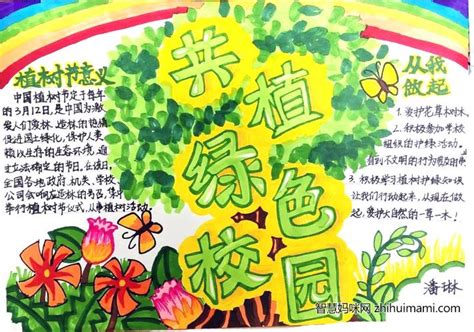 共植
绿色
校园
植树节意义
中国植树节定于每年
的3月12日,是中国为激
发人们爱林、造林的热情,
促进国土绿化,保护人类
赖以生存的生态环境,通
过立法确定的节日。在该日,
全国各地政府、机关、学校、
公司会响应造林的号召,集中
举行植树节仪式,从事植树活动。
从我
做起
1. 爱护花草树木。
2. 积极参加学校
组织的护绿活动。
看到不文明的行为及时
3. 积极学习植树护绿知识
让我们行动起来,从现在做
起,爱护大自然的一草一木!
潘琳
智慧妈咪网 zhihuimami.com